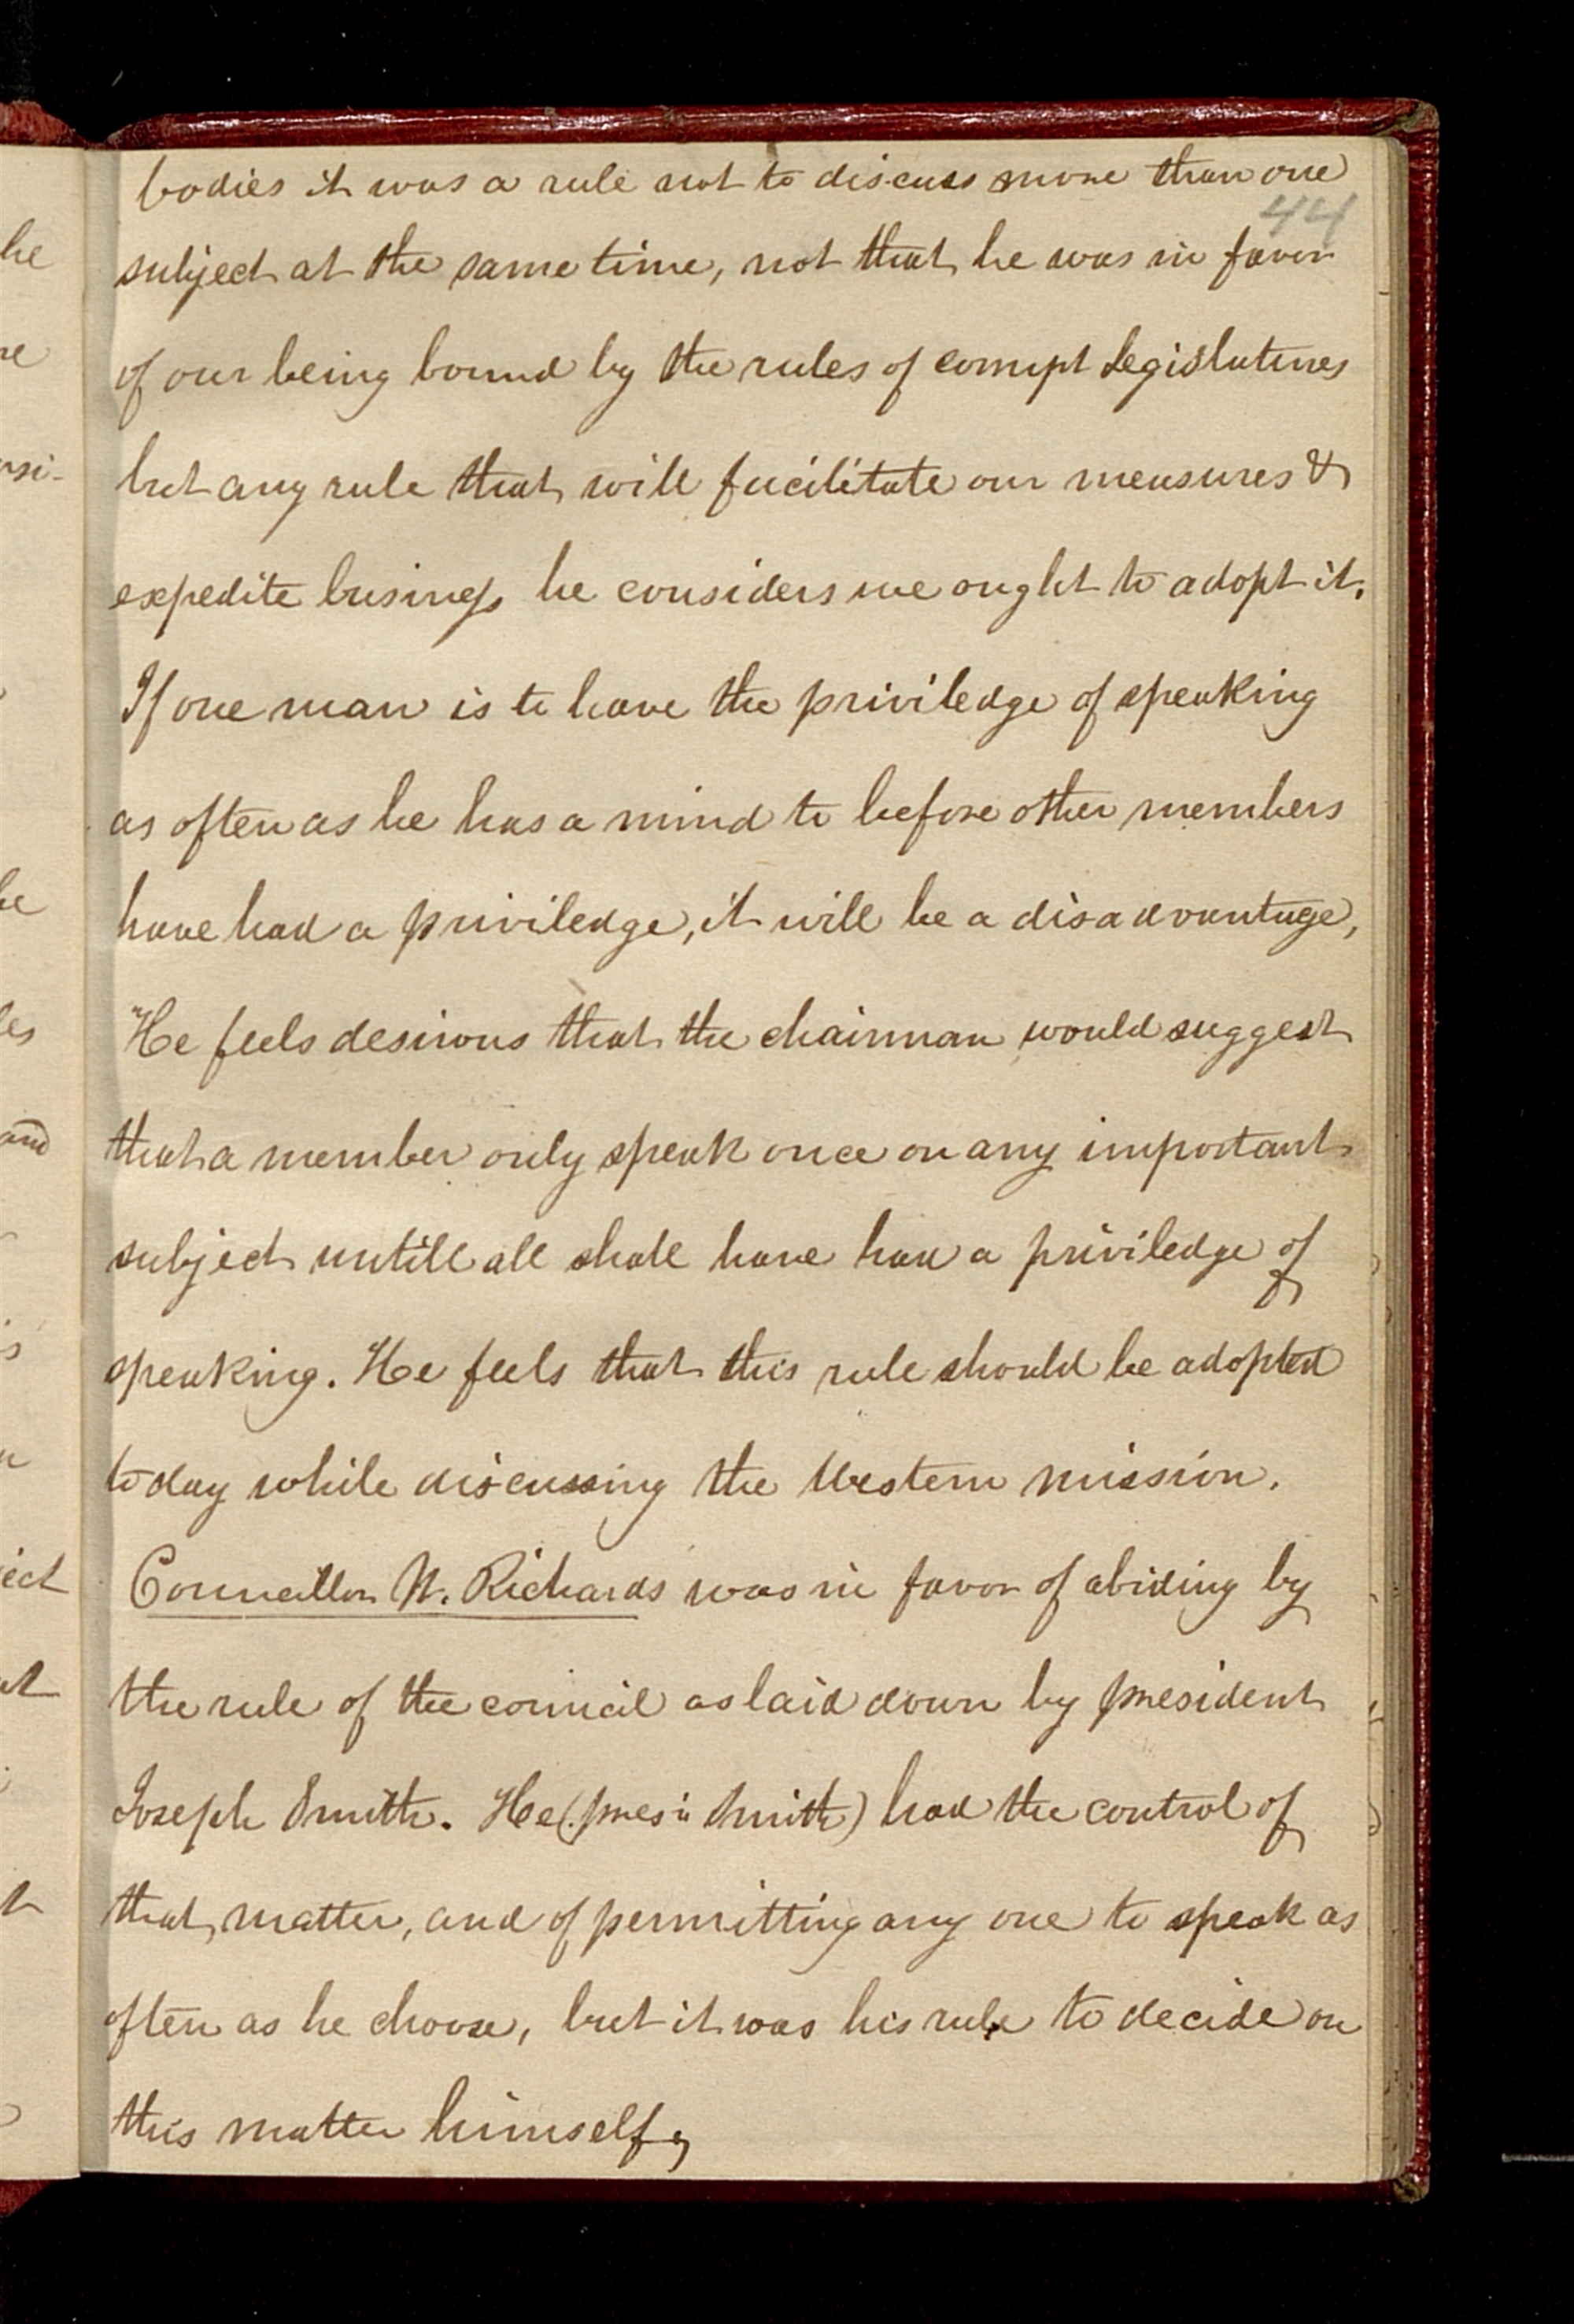 he
re
nsi-
he
les
and
is
n
ject
at
t
bodies it was a rule not to discuss more than one
44
subject at the same time, not that he was in favor
of our being bound by the rules of corrupt Legislatures
but any rule that will facilitate our measures &
expedite business he considers we ought to adopt it.
If one man is to have the priviledge of speaking
as often as he has a mind to before other members
have had a priviledge, it will be a disadvantage,
He feels desirous that the chairman would suggest
that a member only speak once on any important
subject untill all shall have had a priviledge of
speaking. He feels that this rule should be adopted
to day while discussing the Western mission.
Councillor W. Richards was in favor of abiding by
the rule of the council as laid down by president
Joseph Smith. He (pres.t Smith) had the control of
that matter, and of permitting any one to speak as
often as he choose, but it was his rule to decide on
this matter himself,